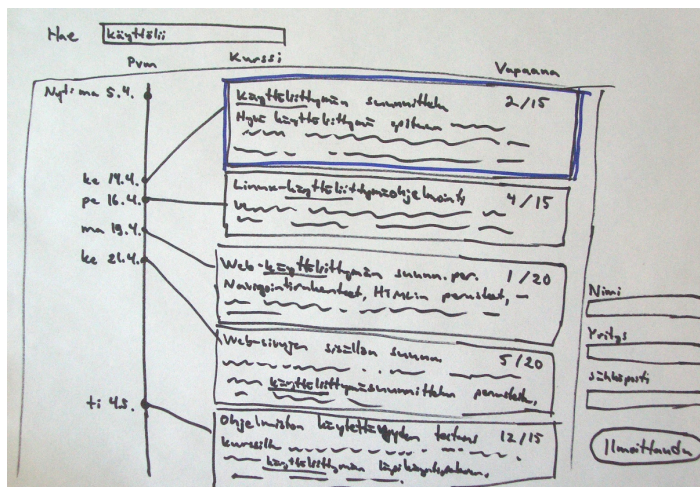 Hae käyttölii
Pvm Kurssi Vapaana
Nyt: ma 5.4.
Käyttöliittymän suunnittelu 2/15
Hyvä käyttöliittymä
ke 14.4.
pe 16.4.
Linux-käyttöliittymäohjelmointi 4/15
ma 19.4.
ke 21.4.
Web-käyttöliittymän suunn. per. 1/20
Navigointirakenteet, HTML:n perusteet,
Web-sivujen sisällön suunn 5/20
käyttöliittymäsuunnittelun perusteita,
ti 4.5.
Ohjelmiston käytettävyyden testaus 12/15
Kurssilla
käyttöliittymän
Nimi
Yritys
Sähköposti
Ilmoittaudu